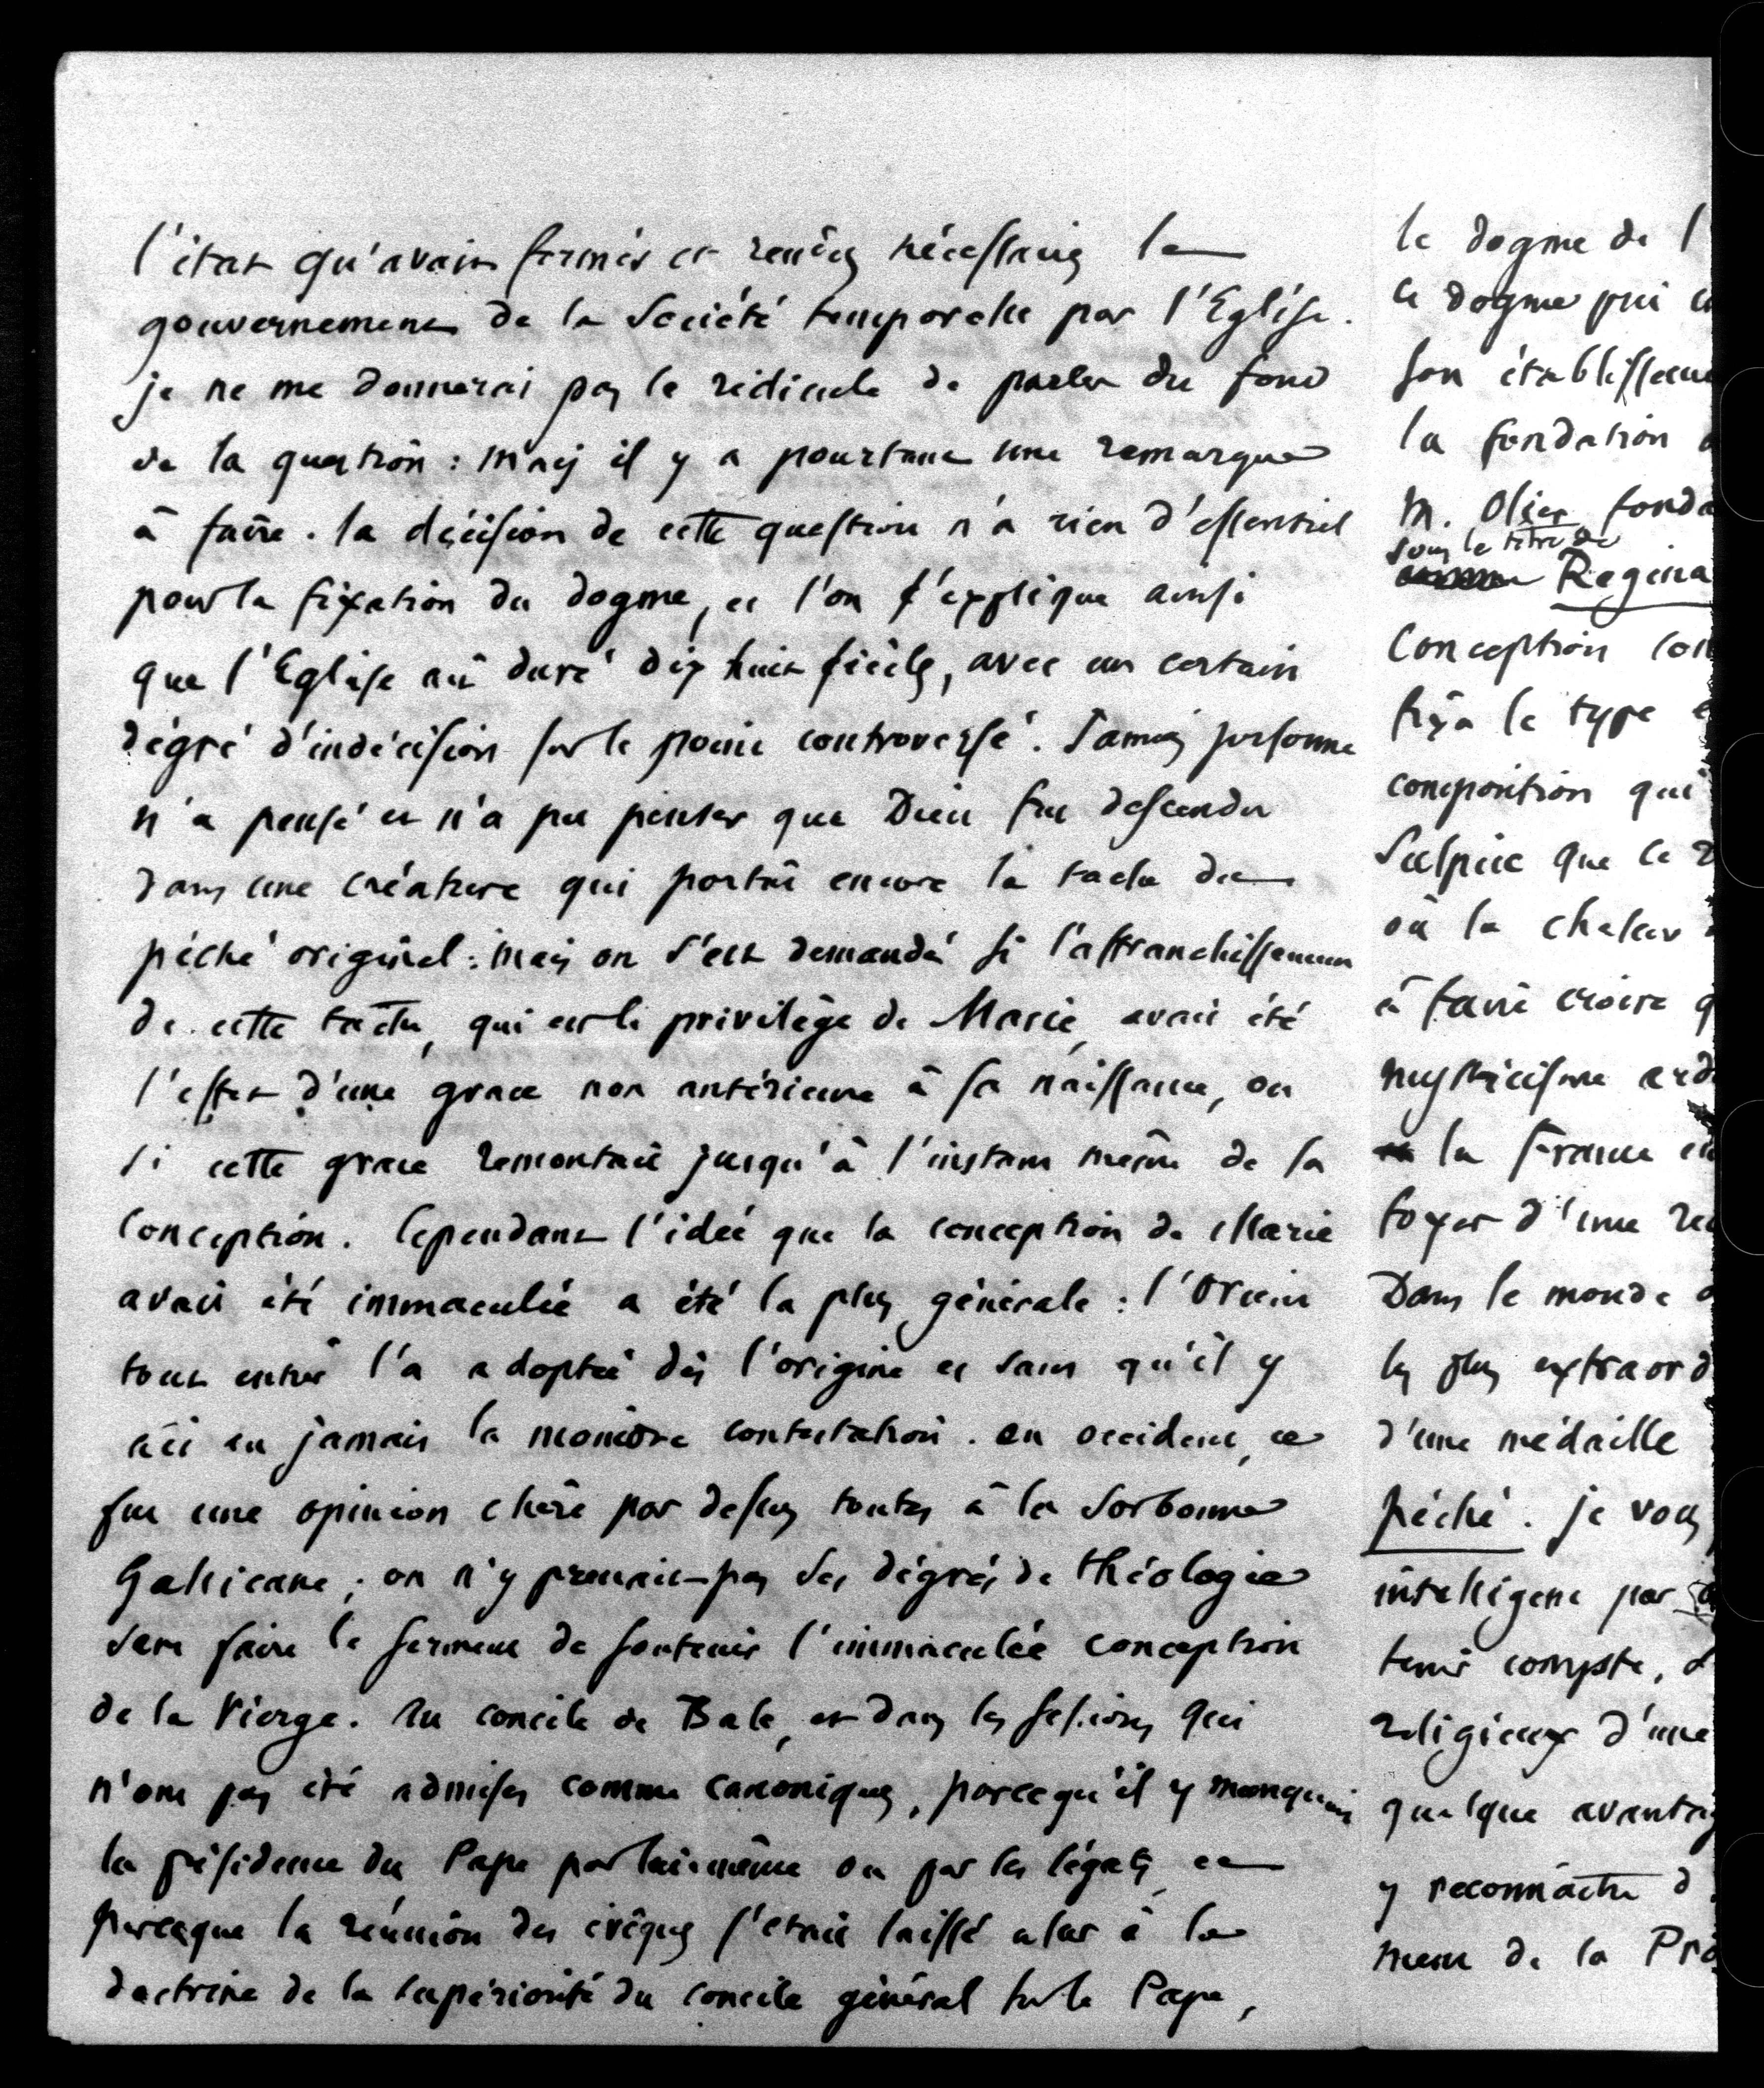 l'état qu'avait formés et rendus nécessaires le
gouvernement de la Société temporelle par l'Eglise.
je ne me donnerai pas le ridicule de parler du fond
de la question : mais il y a pourtant une remarque
à faire. la décision de cette question n'a rien d'essentiel
pour la fixation du dogme, et l'on s'explique ainsi
que l'Eglise ait duré dix huit siècles, avec un certain
dégré d'indécision sur le point controversé. Jamais personne
n'a pensé et n'a pu penser que Dieu fut descendu
dans une créature qui portât encore la tache du
péché originel : mais on s'est demandé si l'affranchissement
de cette tache, qui est le privilège de Marie, avait été
l'effet d'une grace non antérieure à sa naissance, ou
si cette grace remontait jusqu'à l'instant même de sa
Conception. Cependant l'idée que la conception de Marie
avait été immaculée a été la plus générale : l'Orient
tout entier l'a adoptée dès l'origine et sans qu'il y
ait eu jamais la moindre contestation. en occident, ce
fut une opinion chère par dessus toutes à la Sorbonne
Gallicane ; on n'y prenait pas ses dégrés de théologie
sans faire le serment de soutenir l'immaculée conception
de la Vierge. Au concile de Bale, et dans les sessions qui
n'ont pas été admises comme canoniques, parcequ'il y manquait
la présidence du Pape par lui-même ou par les légats, et
parceque la réunion des évêques s'était laissé aler à la
doctrine de la supériorité du concile général sur le Pape,
le dogme de l'
ce dogme qui
son établissem
la fondation
M. Olier fonda
sous le titre de
Regina
Conception
fixa le type
composition qui
Sulpice que ce
où la chaleur
à faire croire q
mysticisme ard
la France
foyer d'une
Dans le monde
les plus extraord
d'une médaille
péché. je vous
intelligent par
tenir compte, d
religieux d'une
quelque avantag
y reconnaître d
ment de la Pro